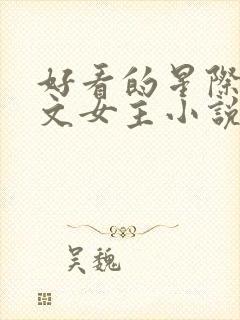 好看的星際
文女主小說
吴魏